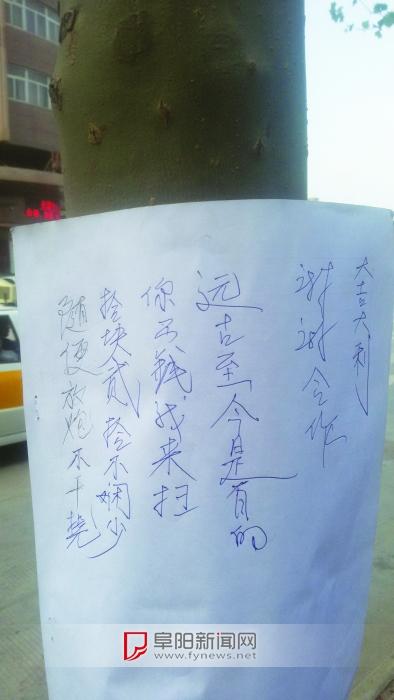 随便放炮不干挠
拾块贰拾不娴少
你 钱我来扫
远古至今是有的
谢谢合作
大吉大利
阜阳新闻网
www.fynews.net